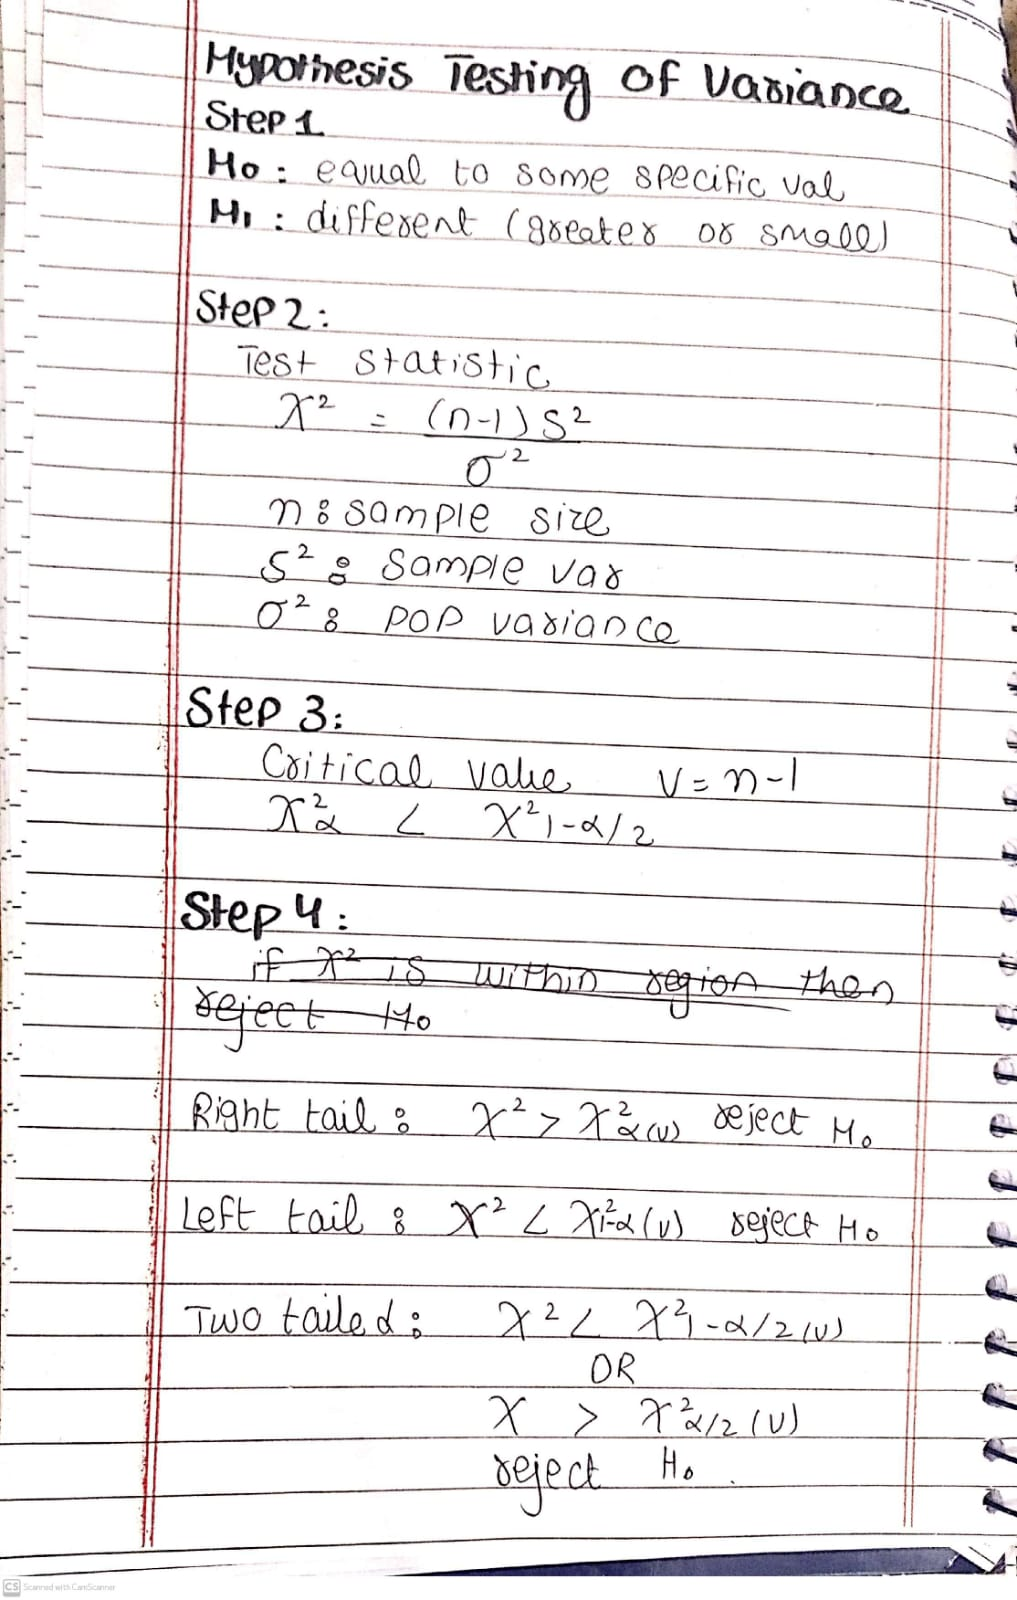 Hypothesis Testing of Variance
Step 1
H₀ : equal to some specific val
H₁ : different (greater or small)
Step 2 :
Test statistic
χ² = (n-1) S²
σ²
n : sample size
S² : Sample var
σ² : pop variance
Step 3 :
Critical value V = n-1
χ²α < χ²1-α/2
Step 4 :
if χ² is within region then
reject H₀
Right tail : χ² > χ²α(v) reject H₀
Left tail : χ² < χ²1-α(v) reject H₀
Two tailed : χ² < χ²1-α/2(v)
OR
χ > χ²α/2(v)
reject H₀.
CS Scanned with CamScanner